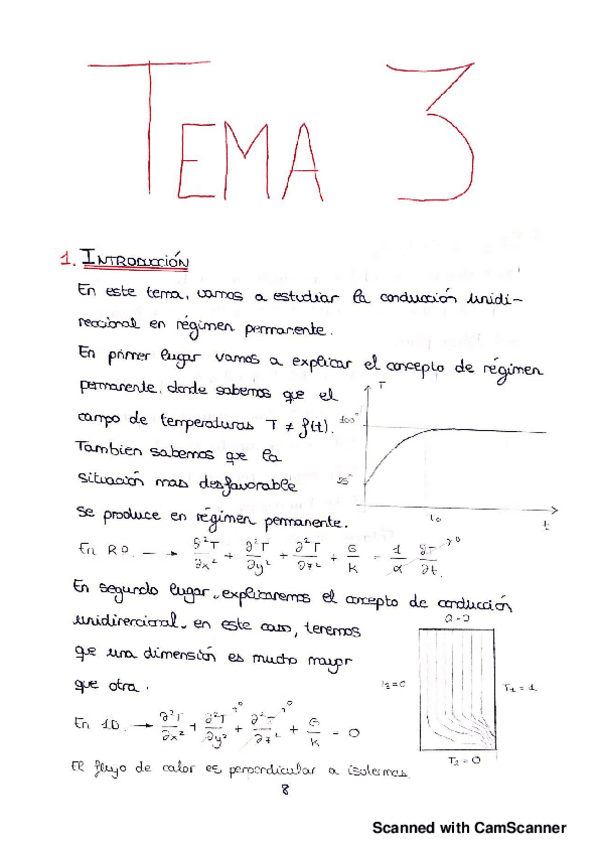 TEMA 3
1. INTRODUCCIÓN
En este tema, vamos a estudiar la conducción unidi-
reccional en régimen permanente.
En primer lugar vamos a explicar el concepto de régimen
permanente, donde sabemos que el
campo de temperaturas T ≠ f(t).
Tambien sabemos que la
situación mas desfavorable
se produce en régimen permanente.
T
100°
25°
t₀
t
En R.P. → ∂²T/∂x² + ∂²T/∂y² + ∂²T/∂z² + G/k = 1/α ∂T/∂t →0
En segundo lugar, explicaremos el concepto de conducción
unidirercional, en este caso, teremos
que una dimensión es mucho mayor
que otra.
T₁ = 1
T₂ = 0
En 1D. → ∂²T/∂x² + ∂²T/∂y² →0 + ∂²T/∂z² →0 + G/k = 0
El flujo de calor es perpendicular a isotermas
8
Scanned with CamScanner